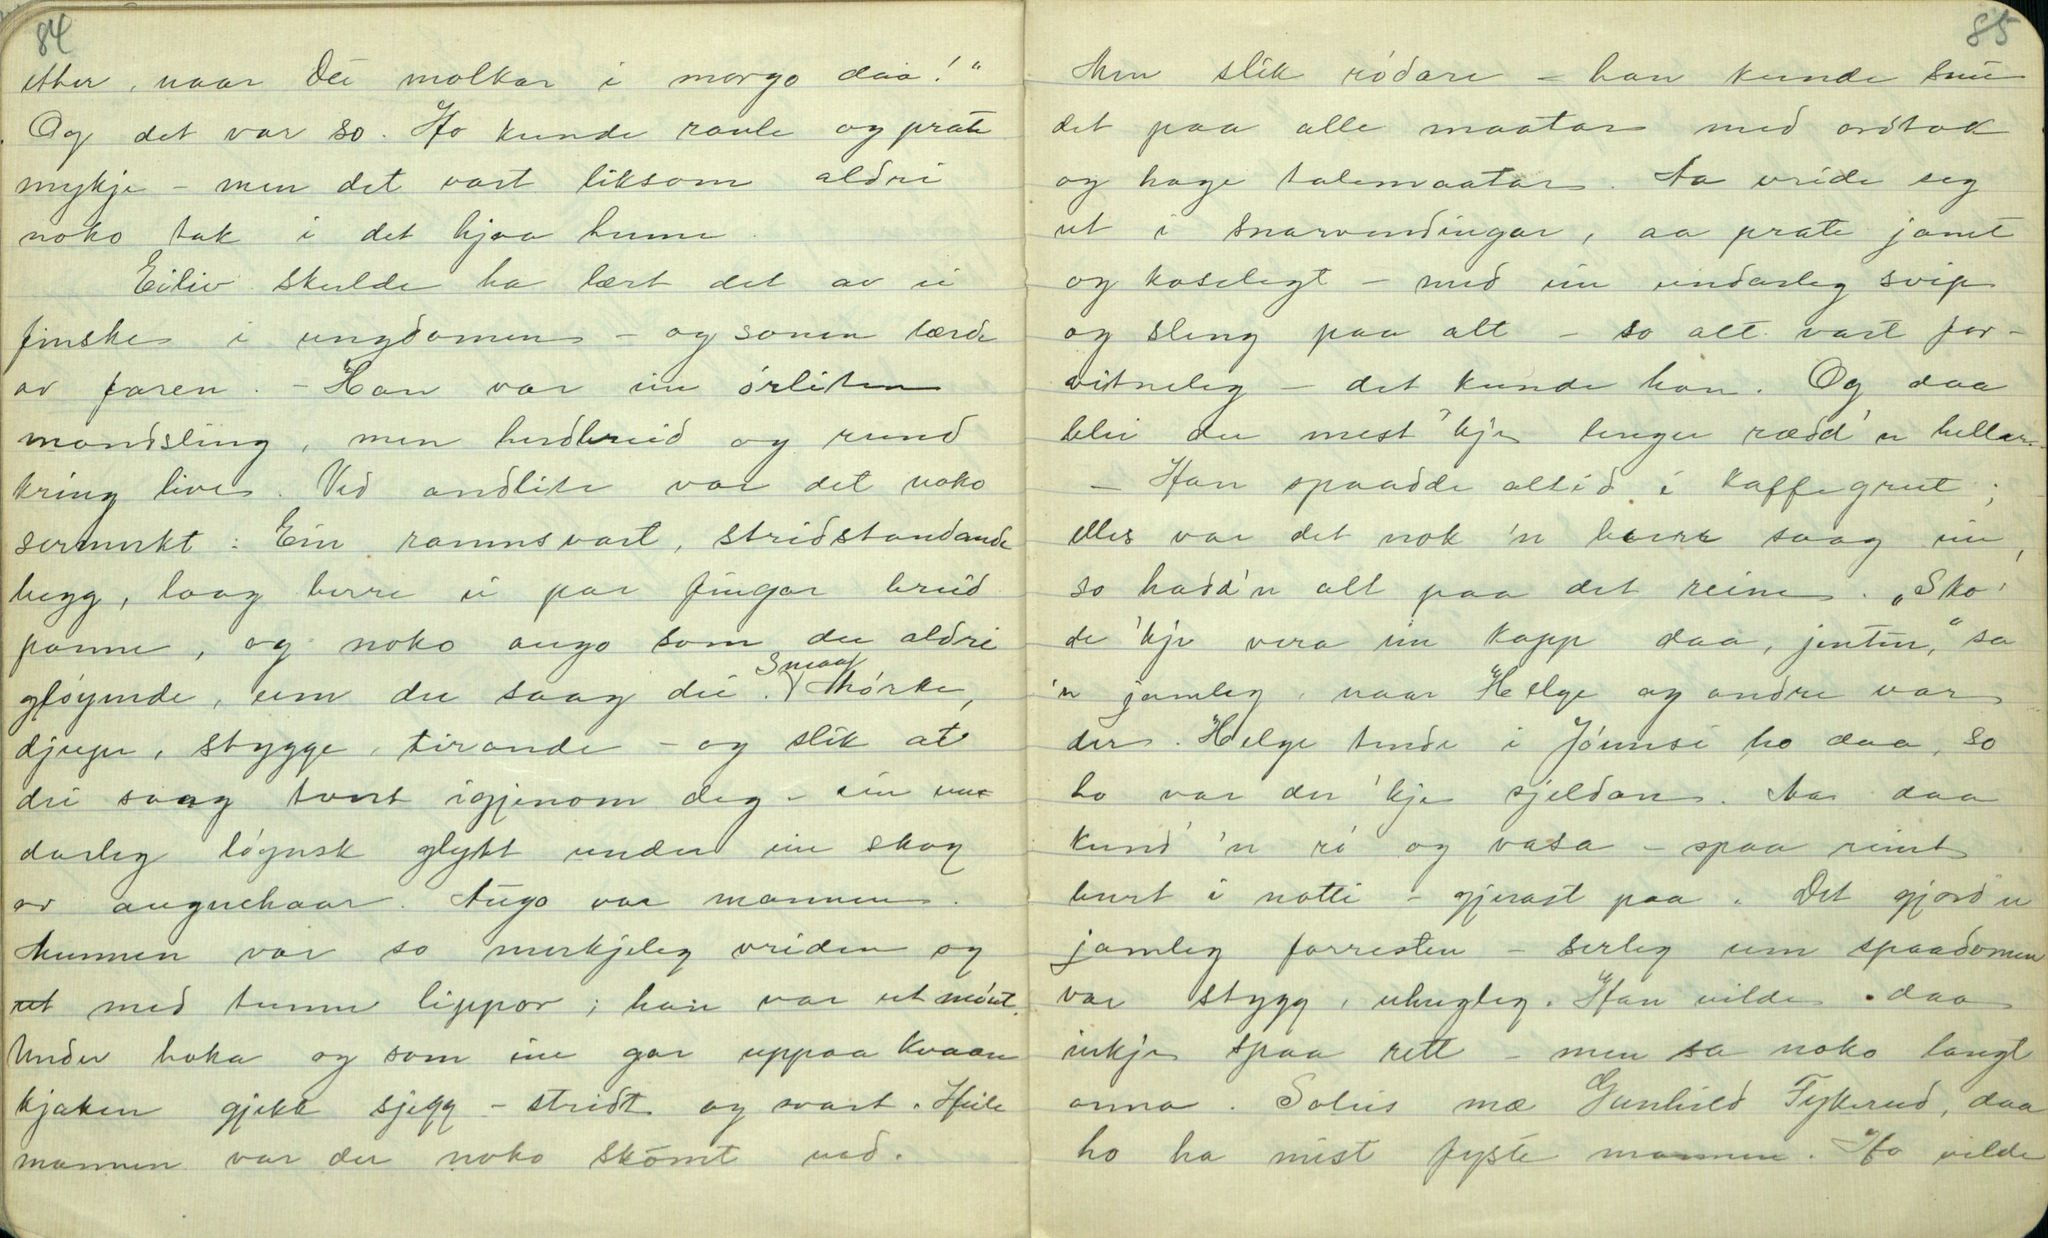 84
etter, naar Dei molkar i morgo daa!"
Og det var so. Ho kunde raule og prate
mykje - men det vart liksom aldri
noko tak i det hjaa henne.
Eiliv skulde ha lært det av ei
finske i ungdomen - og sonen lærde
av faren. - Han var ein örliten
mandsling, men herdbreid og rund
kring livet. Ved andlite var det noko
sermerkt: Ein ramnsvart, stridstandande
begg, laag berre ei par fingar breid
panne, og noko augo som du aldri
gløymde, um du saag dei. Smaa, Mørke,
djupe, stygge, tirande - og slik at
dei saag tvert igjenom deg - ein un-
darleg løgnsk glytt under ein skog
av augnehaar. Augo var mannen.
Munnen var so merkjeleg vriden og
med tunne lippor; han var ut mönt.
Under haka og som ein gar uppaa kvaan
kjaken gjekk sjegg - stridt og svart. Heile
mannen var der noko skömt ved.
85
Men slik rödare - han kunde snu
det paa alle maatar med ordtak
og hage talemaatar. Aa vride seg
ut i snarvendingar, aa prate jamt
og koselegt - med ein undarleg svip
og sleng paa alt - so alt vart for-
vitneleg - det kunde han. Og daa
blei du mest 'kje lenger rædd 'n heller.
- Han spaadde altid i kaffegrut;
elles var det nok 'n berre saag ein,
so hadd'n alt paa det reine. „Sko'
de 'kje vera ein kopp daa, jenten," sa
'n jamleg, naar Helge og andre var
der. Helge tende i Jönnsi ho daa, so
ho var der 'kje sjeldan. Aa daa
kund' 'n rö og vasa - spaa reint
burt i natti - gjerast paa. Det gjord'n
jamleg forresten - serleg um spaadomen
var stygg, uhugleg. Han vilde daa
inkje spaa rett - men sa noko langt
anna. Soleis mæ Gunhild Tykerud, daa
ho ha mist fyste mannen. Ho vilde